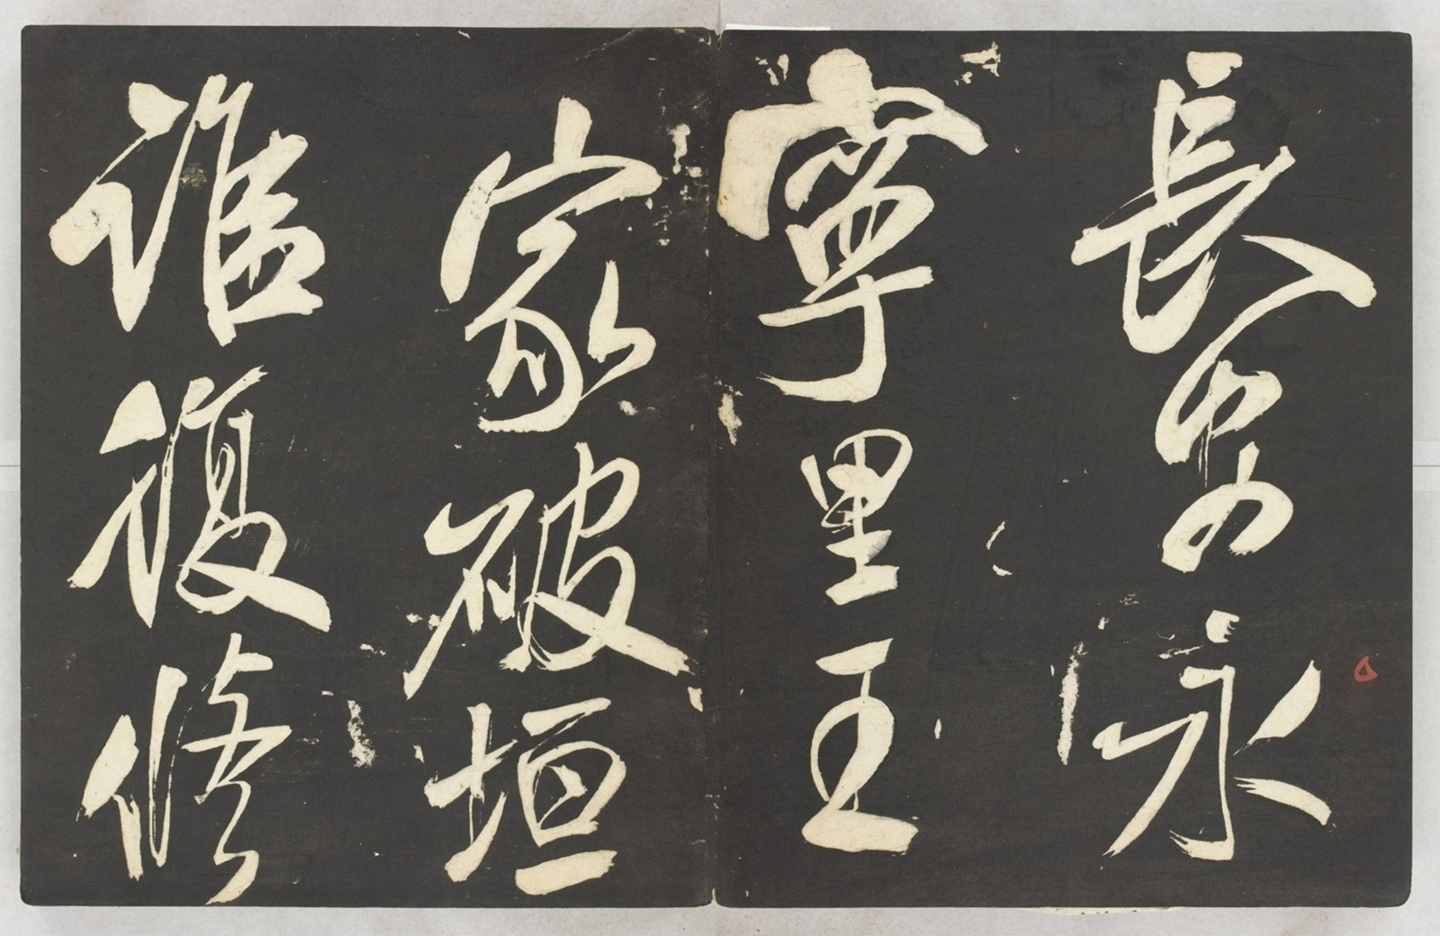 長安永
寧里王
家破垣
誰復修